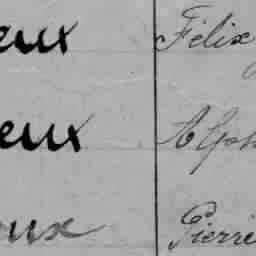 eux Félix
eux Alph
oux Pierre